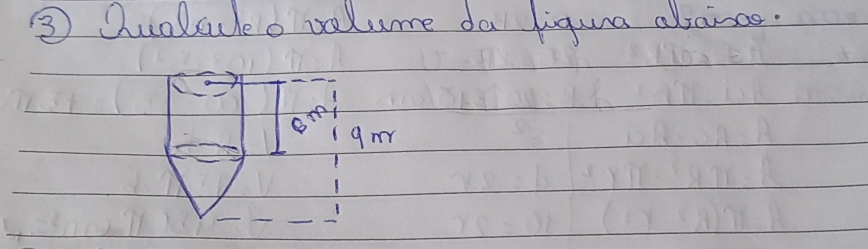 ③ Qualcule o volume da figura abaixo.
6m
9m